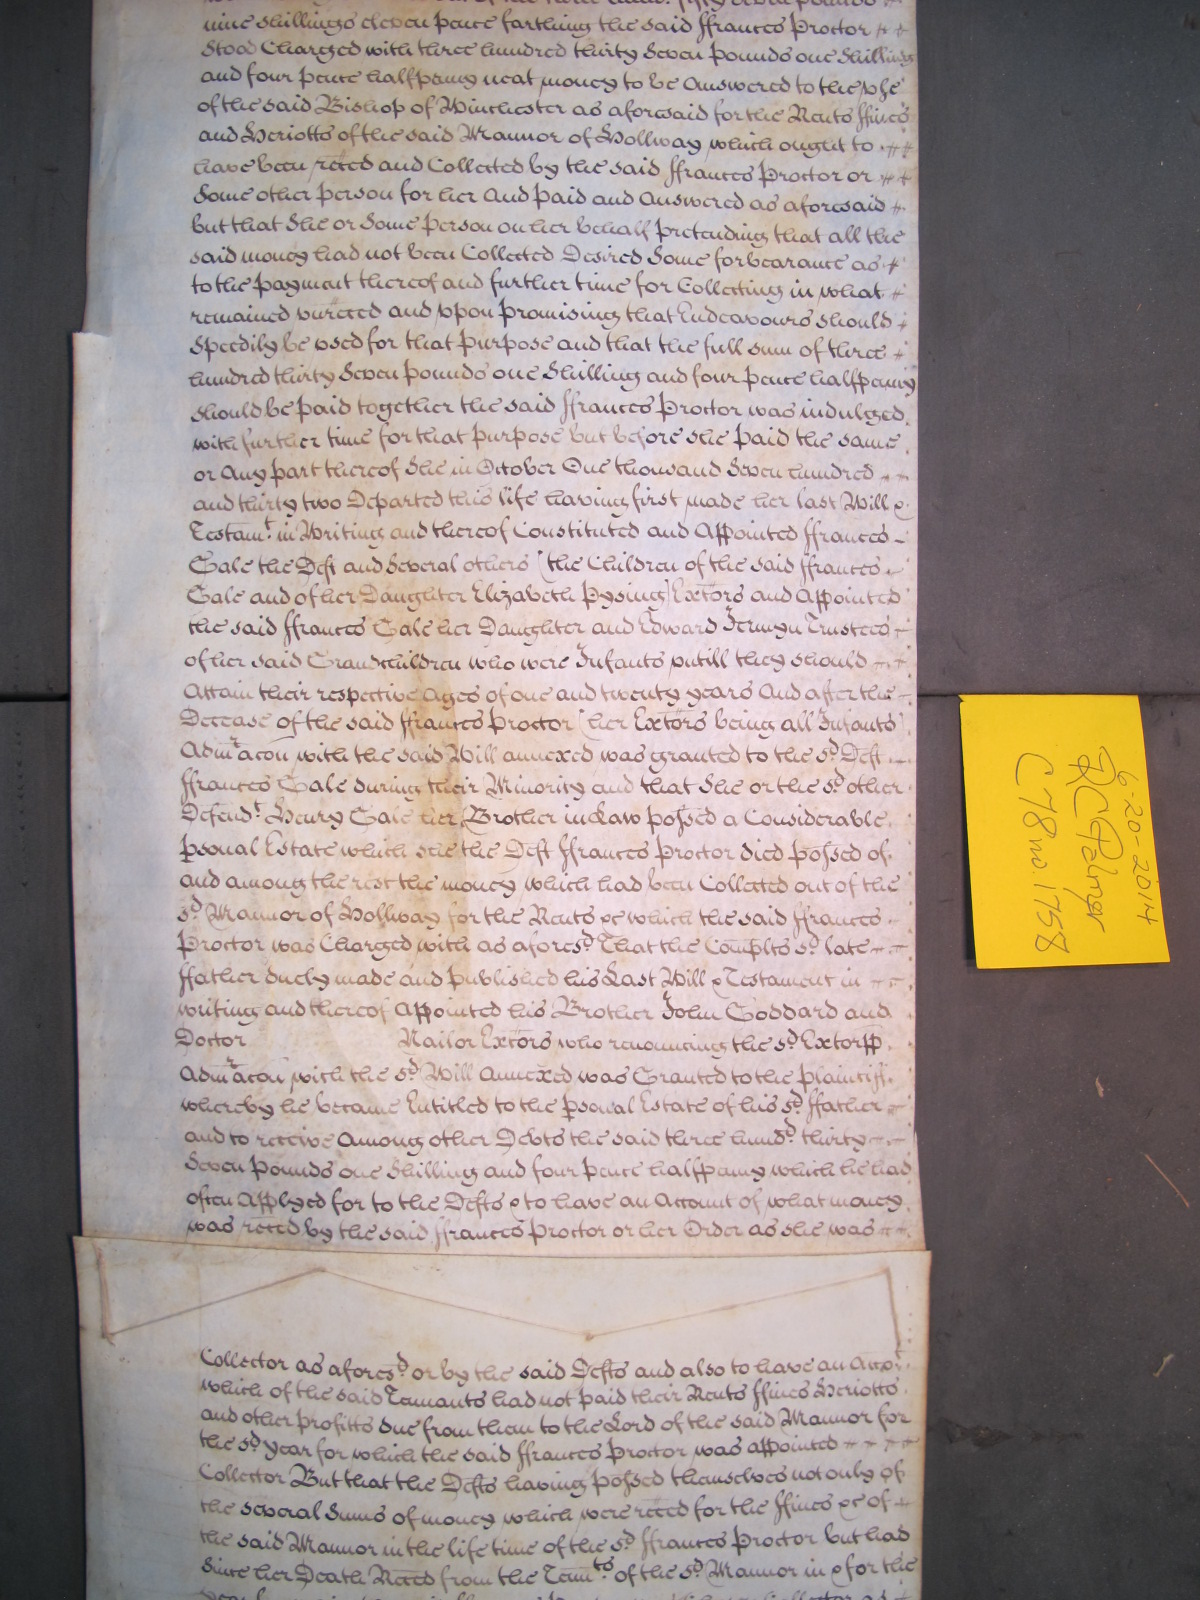 nine shillings eleven pence farthing the said ffrances Proctor
Stood Charged with three hundred thirty Seven pounds one Shilling
and four pence halfpenny neat money to be Answered to the vse
of the said Bishop of Winchester as aforesaid for the Rents ffines
and Heriotts of the said Mannor of Hollway which ought to
have been reced and Collected by the said ffrances Proctor or
Some other person for her And paid and Answered as aforesaid
but that She or Some person on her behalf pretending that all the
said money had not been Collected Desired Some forbearance as
to the payment thereof and further time for Collecting in what
remained vnreced and vpon promising that Endeavours should
Speedily be vsed for that purpose and that the full sum of three
hundred thirty Seven pounds one Shilling and four pence halfpenny
should be paid together the said ffrances Proctor was indulged
with further time for that purpose but before she paid the same
or Any part thereof She in October One thousand Seven hundred
and thirty two Departed this life having first made her last Will &
Testamt in Writing and thereof Constituted and Appointed ffrances
Gale the Deft and Several others (the Children of the said ffrances
Gale and of her Daughter Elizabeth Pysing) Extors and Appointed
the said ffrances Gale her Daughter and Edward Jermyn Trustees
of her said Grandchildren who were Infants vntill they should
Attain their respective Ages of one and twenty years And after the
Decease of the said ffrances Proctor (her Extors being all Infants)
Admracon with the said Will annexed was granted to the sd Deft
ffrances Gale during their Minority and that She or the sd other
Defendt Henry Gale her Brother in Law possed a Considerable
psonal Estate which she the Deft ffrances Proctor died possed of
and among the rest the money which had been Collected out of the
sd Mannor of Hollway for the Rents &c which the said ffrances
Proctor was Charged with as aforesd That the Complts sd late
ffather duely made and published his Last Will & Testament in
writing and thereof Appointed his Brother John Goddard and
Doctor Nailor Extors who renouncing the sd Extorpp
Admracon with the sd Will Annexed was Granted to the plaintiff
whereby he became Entitled to the psonal Estate of his sd ffather
and to receive Among other Debts the said three hundd thirty
Seven pounds one Shilling and four pence halfpenny which he had
often Applyed for to the Defts & to have an Account of what money
was reced by the said ffrances Proctor or her Order as she was
Collector as aforesd or by the said Defts and also to have an Acct
which of the said Tennants had not paid their Rents ffines Heriotts
and other profitts due from them to the Lord of the said Mannor for
the sd year for which the said ffrances Proctor was appointed
Collector But that the Defts having possed themselves not only of
the several Sums of money which were reced for the ffines &c of
the said Mannor in the life time of the sd ffrances Proctor but had
Since her Death Reced from the Tennts of the sd Mannor in & for the
6-20-2014
RC Palmer
C 78 no. 1758